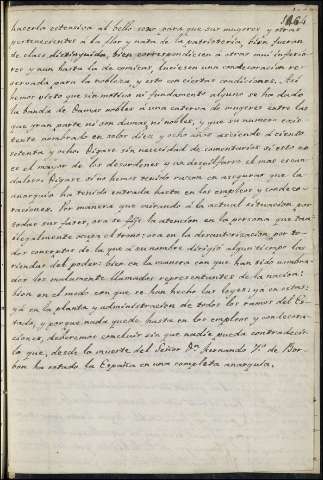 164
hacerla estensiva al bello sexo para que sus mugeres y otras
pertenecientes a la flor y nata de la patrioteria, bien fueran
de clase distinguida, bien correspondiesen a otras muy inferio-
res y aun hasta la de comicas, luciesen una condecoracion re-
servada para la nobleza y esto con ciertas condiciones. Asi
hemos visto que sin motivo ni fundamento alguno se ha dado
la banda de Damas nobles á una caterva de mugeres entre las
que gran parte ni son damas, ni nobles, y que su numero exis-
tente nombrado en solos diez y ocho años asciende á ciento
setenta y ocho. Digase sin necesidad de comentarios si esto no
es el mayor de los desordenes y un despilfarro el mas escan-
daloso. Digase si no hemos tenido razon en asegurar que la
anarquia ha tenido entrada hasta en los empleos y condeco-
raciones. Por manera que mirando á la actual situacion por
todas sus fases, ora se fije la atencion en la persona que tan
ilegalmente ocupa el trono: ora en la desautorizacion por to-
dos conceptos de la que á su nombre dirigió algun tiempo las
riendas del poder: bien en la manera con que han sido nombra-
dos los malamente llamados representantes de la nacion:
bien en el modo con que se han hecho las leyes: ya en estas:
yá en la planta y administracion de todos los ramos del Es-
tado, y porque nada quede hasta en los empleos y condecora-
ciones, deberemos concluir sin que nadie pueda contradecir-
lo que, desde la muerte del Señor Dn. Fernando 7º de Bor-
bon ha estado la España en una completa anarquia.